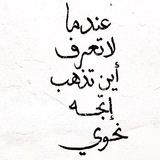 عندما
لا تعرف
أين تذهب
إتجه
نحوي